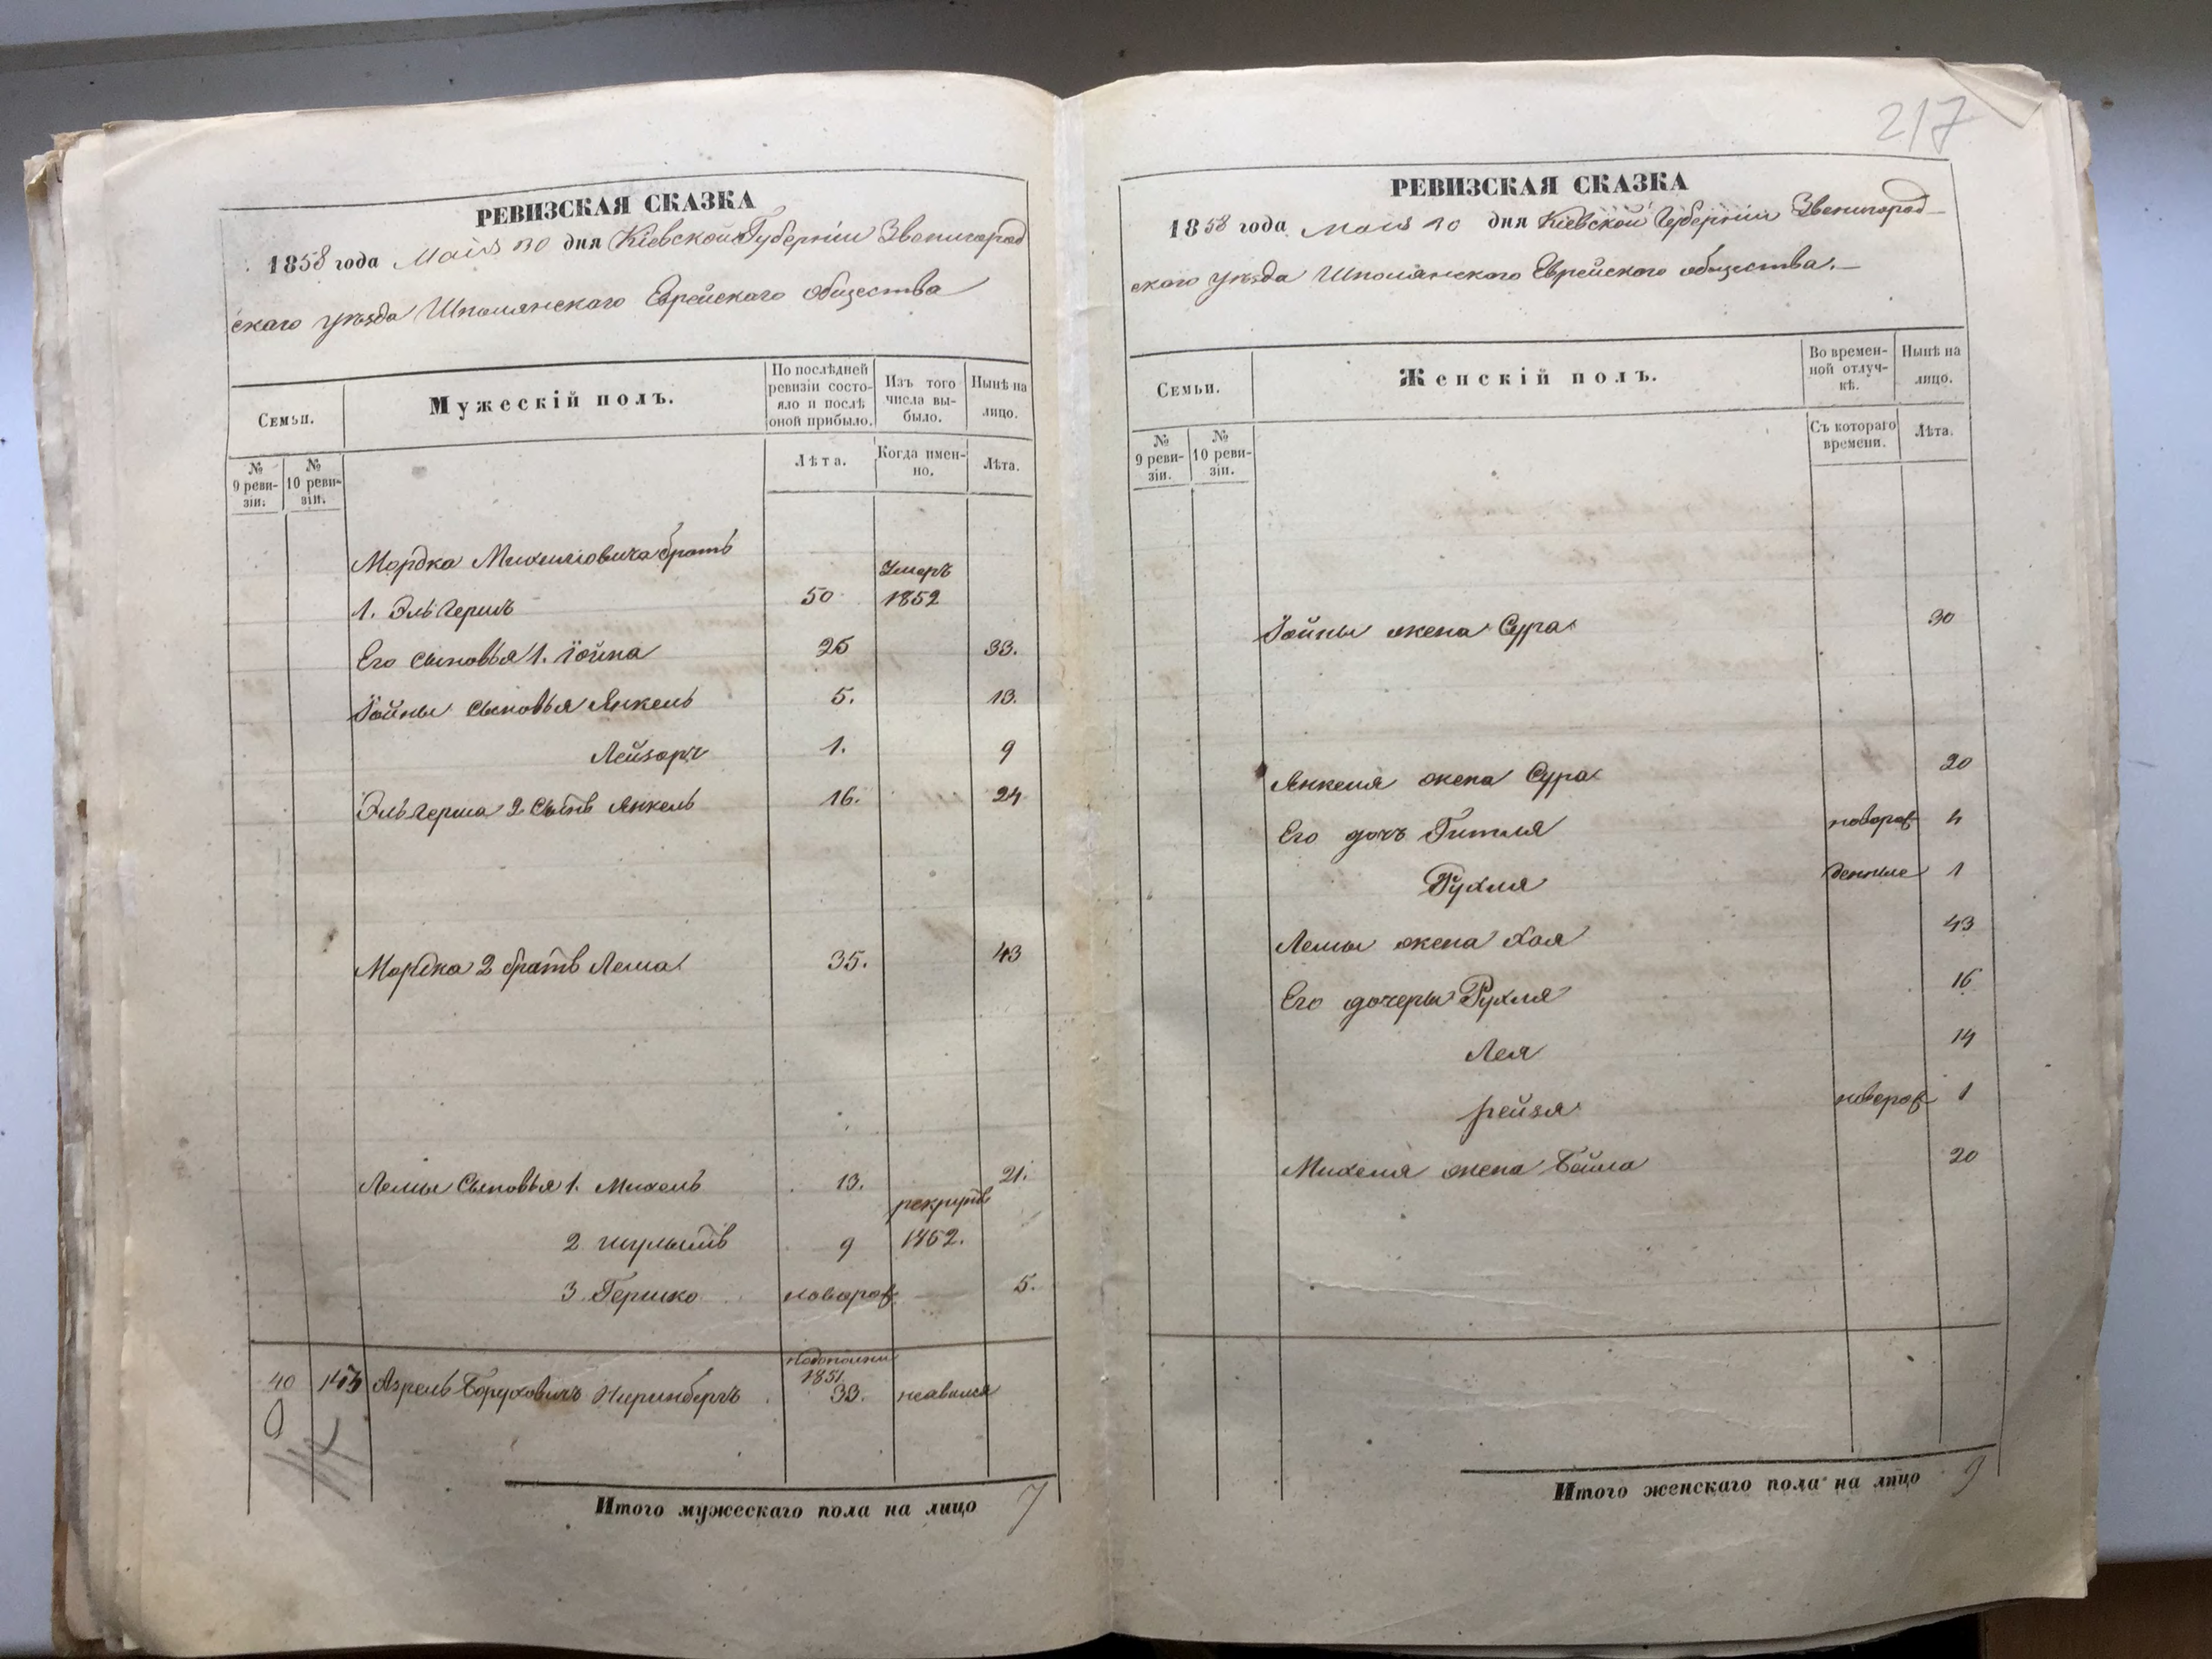 РЕВИЗСКАЯ СКАЗКА
1858 года Маія 10 дня Кіевской Губерніи Звенигород
скаго уѣзда Шполянскаго Еврейскаго общества
Семьи.
Мужескій полъ.
По послѣдней ревизіи состояло и послѣ оной прибыло.
Изъ того числа выбыло.
Нынѣ на лицо.
№ 9 ревизіи.
№ 10 ревизіи.
Лѣта.
Когда именно.
Лѣта.
Мордка Михелiовича братъ
Умеръ
1. Эльгершъ 50 1852
Его сыновья 1. Іойна 25 33.
Іойны сыновья Янкель 5. 13.
Лейзоръ 1. 9
Эльгерша 2 сынъ Янкель 16. 24
Мордка 2 братъ Лема 35. 43
Лемы сыновья 1. Михель 13. 21.
рекрутъ
2 шулымъ 9 1852.
3 Гершко новорож 5.
1851
40 Азрель Боруховичъ Ниринбергъ 33. неявился
Итого мужескаго пола на лицо 7
217
РЕВИЗСКАЯ СКАЗКА
1858 года Маія 10 дня Кіевской Губерніи Звенигород
скаго уѣзда Шполянскаго Еврейскаго общества.
Семьи.
Женскій полъ.
Во временной отлучкѣ.
Нынѣ на лицо.
№ 9 ревизіи.
№ 10 ревизіи.
Съ котораго времени.
Лѣта.
Іойны жена Сура 30
Янкеля жена Сура 20
Его дочь Гитля новорож 4
Рухля денные 1
Лемы жена Хая 43
Его дочеры Рухля 16
Лея 14
рейзя новорож 1
Михеля жена Бейла 20
Итого женскаго пола на лицо 9